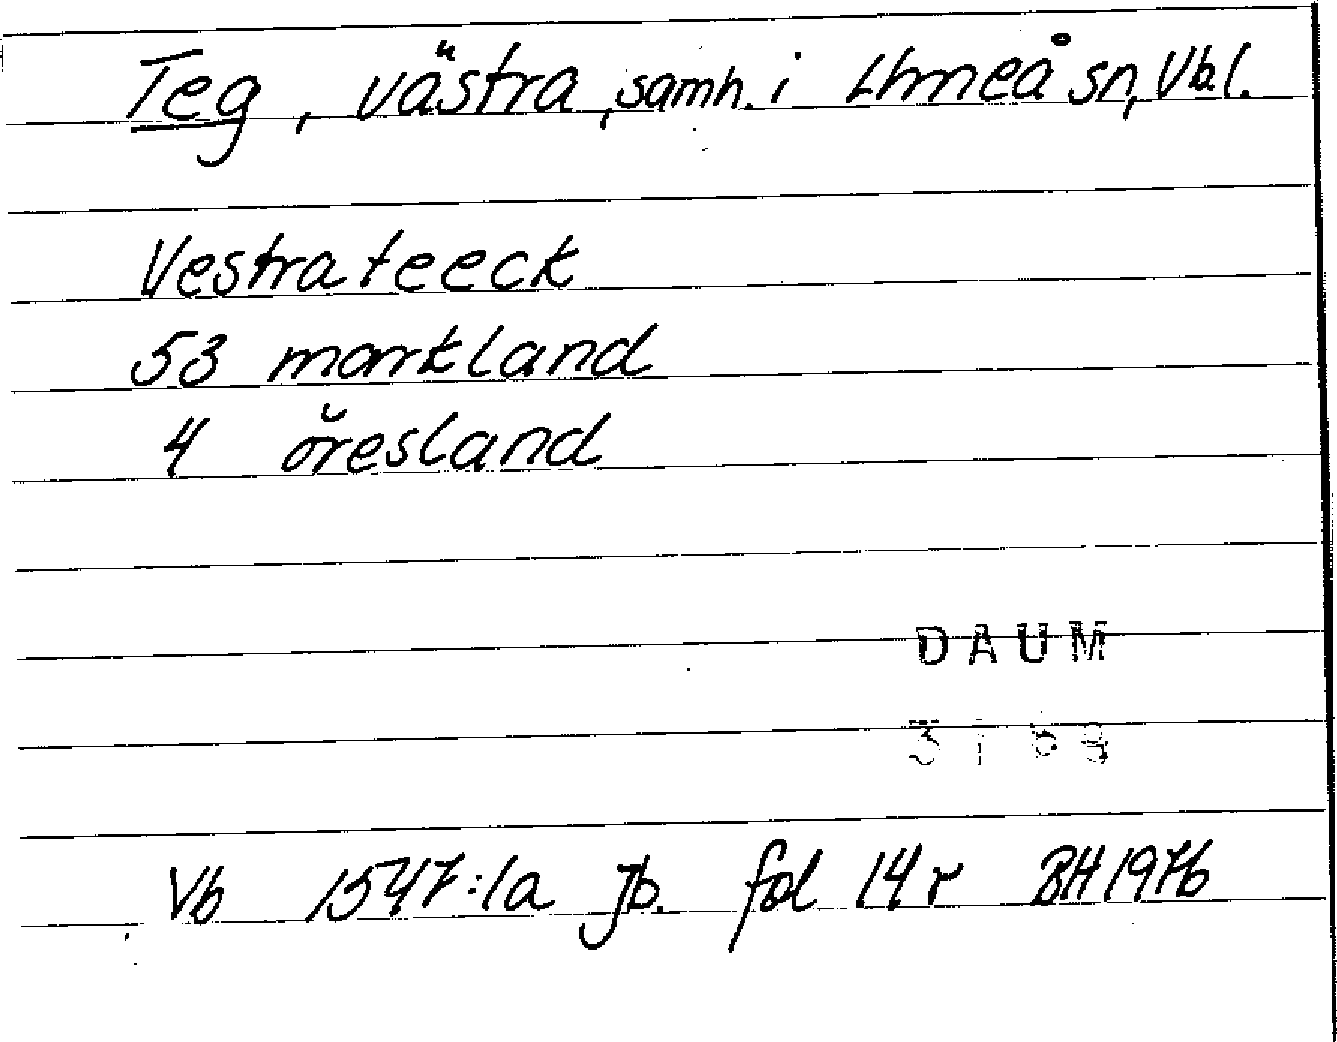 Teg, västra, samh. i Umeå sn, Vb l.
Vestra teeck
53 markland
4 öresland
DAUM
Vb 1547:1a Jb. fol 14 r BH 1976